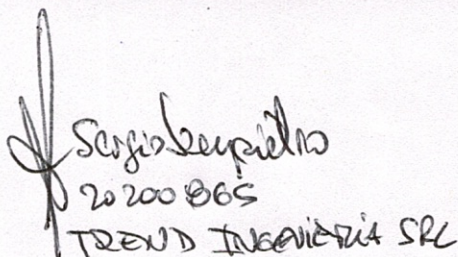 Sergio Sempietro
20200865
TREND INGENIERIA SRL